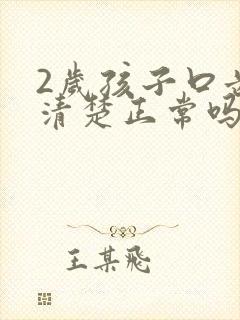 2岁孩子口
清楚正常吗
王某飛